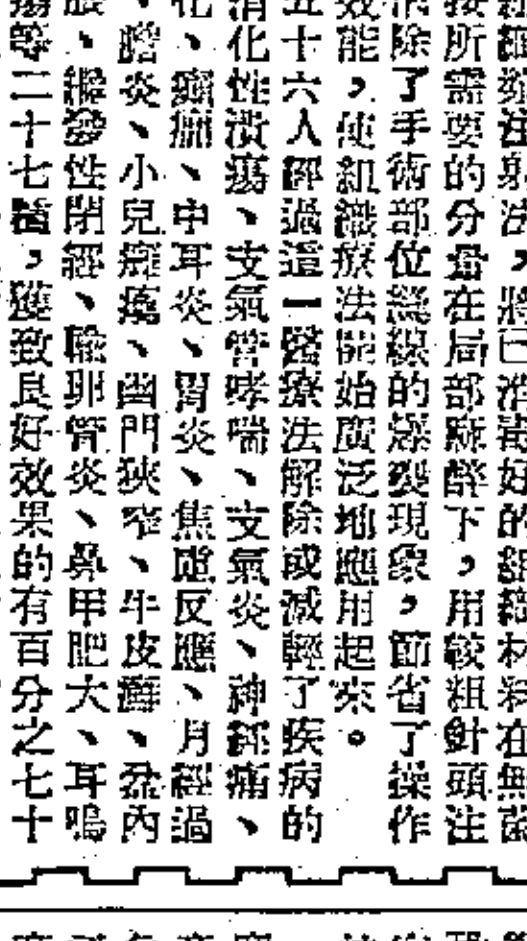 射注法，將已消毒好的組織材料在無菌
按所需要的分量在局部麻醉下，用較粗針頭注
除了手術部位縫線的裂現象，節省了操作
效能，使組織療法開始廣泛地應用起來。
五十六人經過這一醫療法解除或減輕了疾病的
消化性潰瘍、支氣管哮喘、支氣炎、神經痛、
化、癲癇、中耳炎、胃炎、焦慮反應、月經過
、膽炎、小兒痲、幽門狹窄、牛皮癬、盆內
脹、性閉經、輸卵管炎、鼻甲肥大、耳鳴
瘍等二十七種，獲致良好效果的有百分之七十